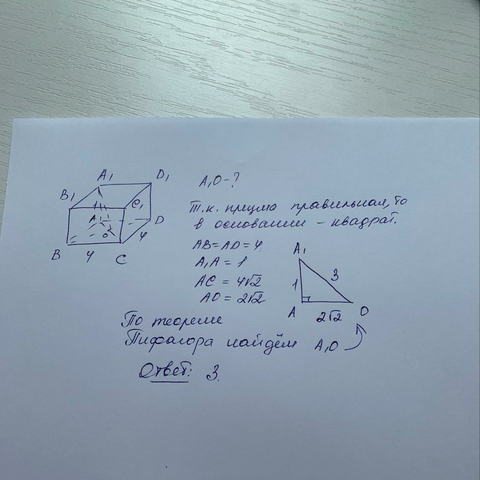 A₁O-?
Т.к. призма правильная, то
в основании - квадрат.
AB=AD=4
A₁A=1
AC=4√2
AO=2√2
По теореме
Пифагора найдём A₁O
Ответ: 3.
A₁
D₁
B₁
C₁
A
D
O
4
B
4
C
A₁
1
3
A
2√2
O